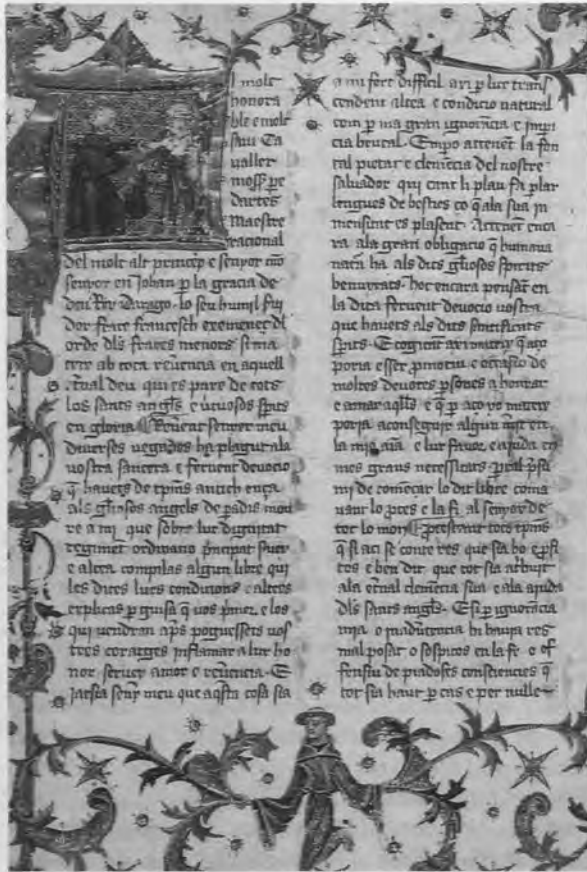 l molt
honora
ble e molt
savi Ca
valler
moss pe
dartes
Maestre
racional
del molt alt princep e senyor
senyor en Johan p la gracia de
deu Rey Darago. lo seu humil ſui
dor frare francesch eximenec dl
orde dls frares menors si ma
teix ab tota reuencia en aquell
qual deu qui es pare de tots
los sants angls e uirtuosos spits
en gloria Reuerent senyer meu
diuerses vegades ha plagut ala
vostra sancera e feruent deuocio
q hauets de tpms antich enca
als gliosos angels de padis mou
re a mi que sobre lur dignitat
regiment ordinacio pncipat
e altea compilas algun libre qui
les dites lurs condicions e altres
explicas p guisa q uos e los
qui vendran aps poguessets uos
tres coratges inflamar a lur ho
nor seruey amor e reuencia. E
Jatsia senyr meu que aqsta cosa sia
a mi fort difficil axi p lur trans
cendent altea e condicio natural
com p ma gran ignorācia e impi
cia brutal. Empo attenet la fon
tal pietat e clemecia del nostre
saluador qui cant li plau fa plar
lengues de besties co q ala sua in
mensitat es plasent. Attenet enca
ra ala gran obligacio q humana
natā ha als dits gliosos spirits
benuyrats. hoc encara pensāt en
la dita feruent deuocio uostra
que hauets als dits sātificats
spits. E cogitāt axi mateix q aco
poria esser pmociu e occasio de
moltes deuotes psones a honrar
e amar aqlls e q p aco yo mateix
poria aconseguir algun mit en
la mia aīa e lur fauor e aiuda en
mes grans necessitats
mi de comecar lo dit libre coma
nant lo e la fi al senyor de
tot lo mon protestant tots tpms
q si aci se conte res que sia bo
tos e ben dit que tot sia atribuit
ala etnal clemēcia sua e ala aiuda
dls sants angls. E si p ignorācia
mia o inaduttencia hi hauia res
mal posat o sospitos en la fe o of
fensiu de piadoses consciencies q
tot sia haut p cas e per nulle